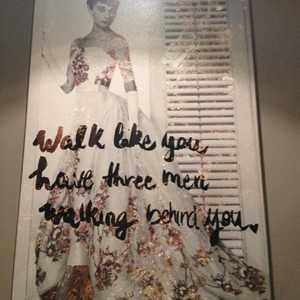 Walk like you
have three men
walking behind you.